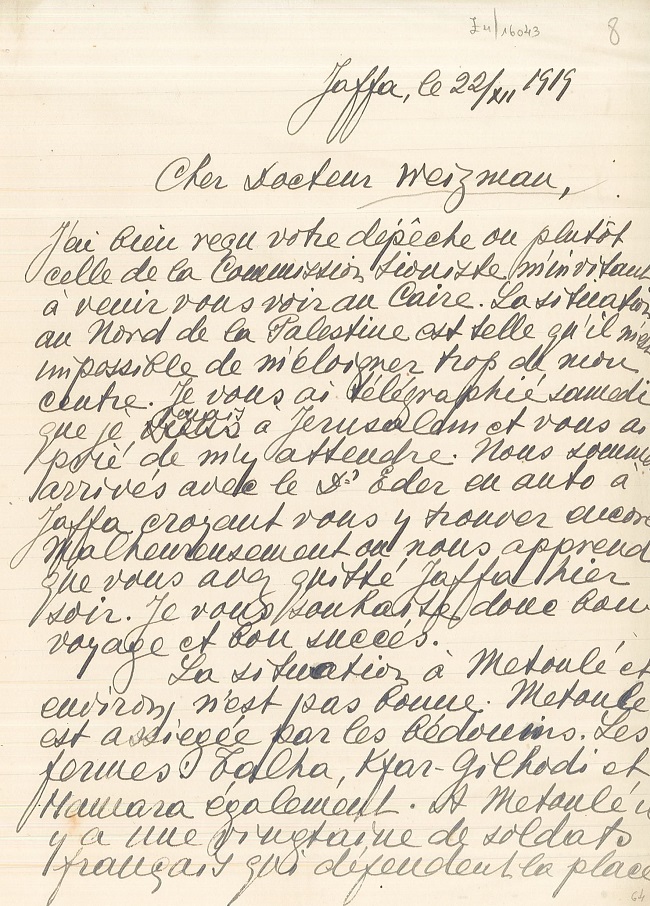 Z4/16043 8
Jaffa, le 22/XII 1919
Cher Docteur Weizman,
J'ai bien reçu votre dépêche ou plutôt
celle de la Commission Sioniste m'invitant
à venir vous voir au Caire. La situation
au Nord de la Palestine est telle qu'il m'est
impossible de m'éloigner trop de mon
centre. Je vous ai télégraphié samedi
que je à Jérusalem et vous ai
prié de m'y attendre. Nous sommes
arrivés avec le Dr Eder en auto à
Jaffa croyant vous y trouver encore
Malheureusement on nous apprend
que vous avez quitté Jaffa hier
soir. Je vous souhaite donc bon
voyage et bon succés.
La situation à Metoulé et
environs n'est pas bonne. Metoule
est assiegée par les bédouins. Les
fermes Talha, Kfar-Gilhodi et
Hamara également. A Metoulé il
y a une vingtaine de soldats
français qui défendent la place
64